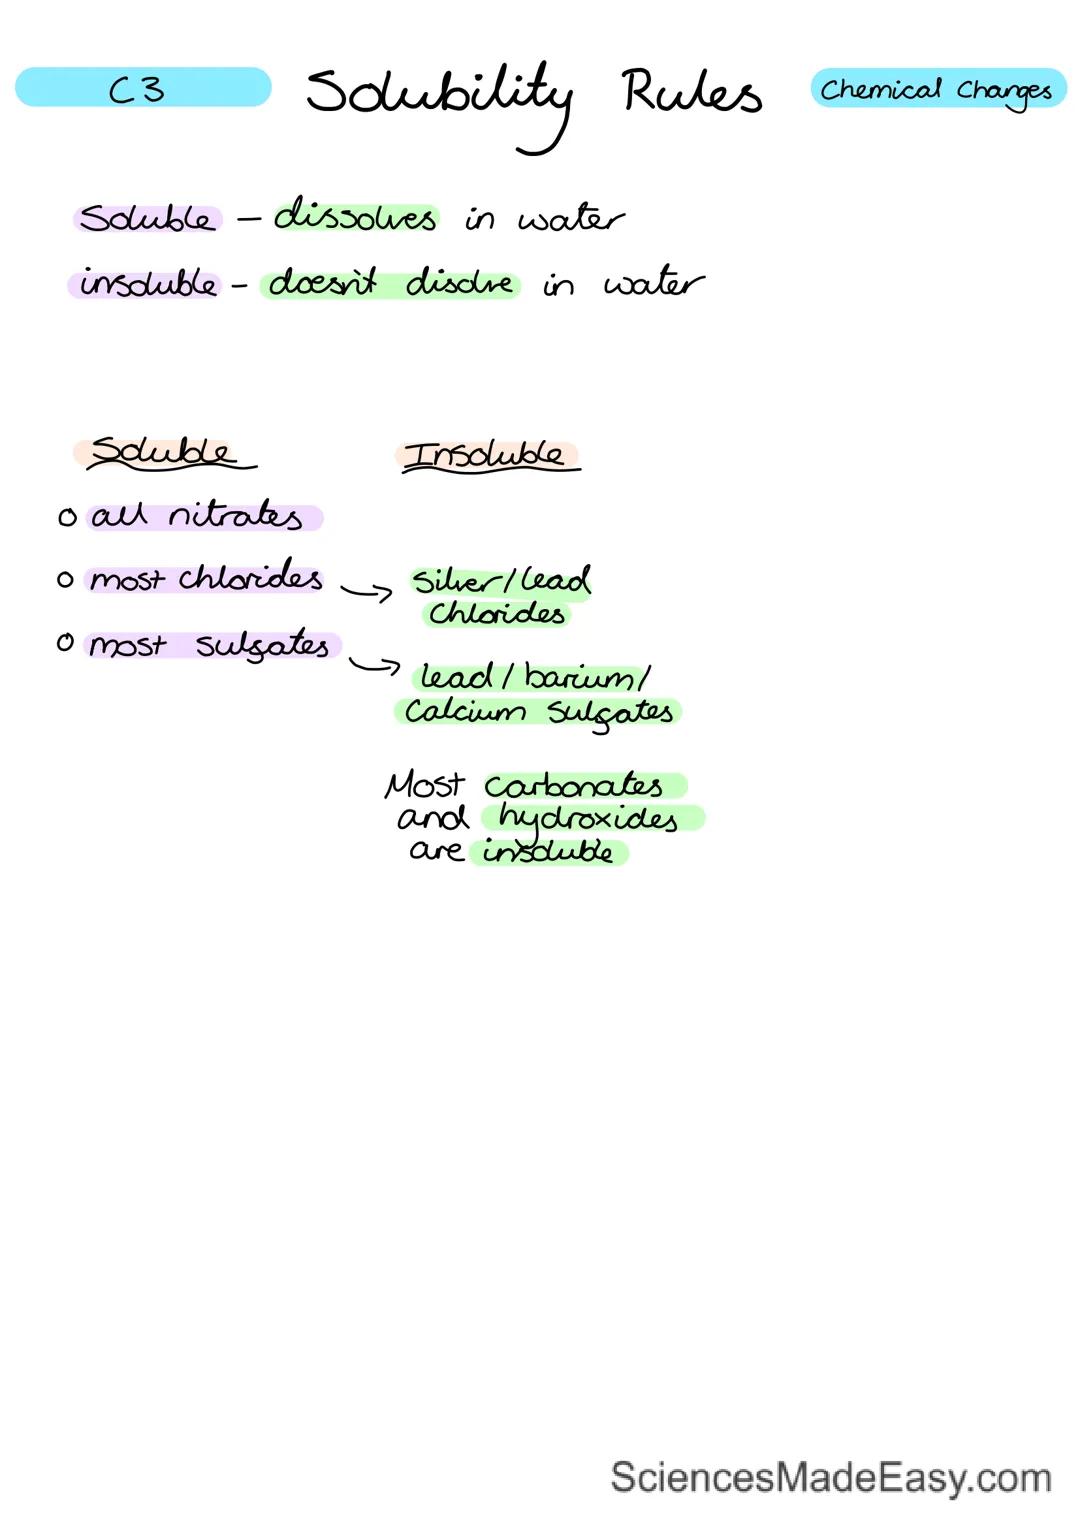 C3 Solubility Rules Chemical Changes
Soluble – dissolves in water
insoluble – doesn't disolve in water
Soluble Insoluble
o all nitrates
o most chlorides → Silver/lead
Chlorides
o most sulfates → lead / barium/
Calcium Sulfates
Most Carbonates
and hydroxides
are insoluble
SciencesMadeEasy.com